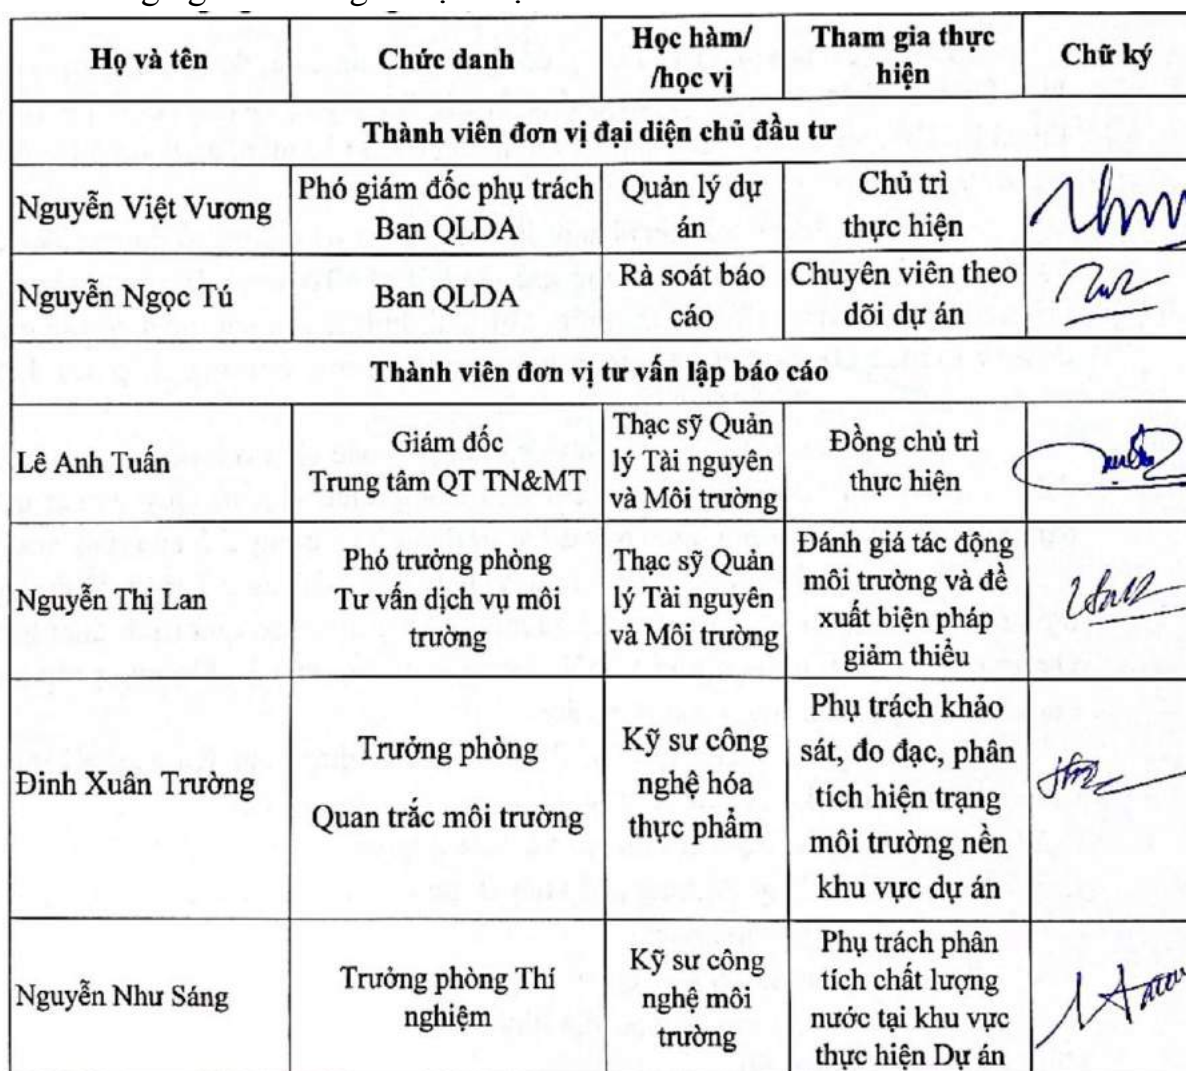 Họ và tên
Chức danh
Học hàm/
/học vị
Tham gia thực
hiện
Chữ ký
Thành viên đơn vị đại diện chủ đầu tư
Nguyễn Việt Vương
Phó giám đốc phụ trách
Ban QLDA
Quản lý dự
án
Chủ trì
thực hiện
Nguyễn Ngọc Tú
Ban QLDA
Rà soát báo
cáo
Chuyên viên theo
dõi dự án
Thành viên đơn vị tư vấn lập báo cáo
Lê Anh Tuấn
Giám đốc
Trung tâm QT TN&MT
Thạc sỹ Quản
lý Tài nguyên
và Môi trường
Đồng chủ trì
thực hiện
Nguyễn Thị Lan
Phó trưởng phòng
Tư vấn dịch vụ môi
trường
Thạc sỹ Quản
lý Tài nguyên
và Môi trường
Đánh giá tác động
môi trường và đề
xuất biện pháp
giảm thiểu
Đinh Xuân Trường
Trưởng phòng
Quan trắc môi trường
Kỹ sư công
nghệ hóa
thực phẩm
Phụ trách khảo
sát, đo đạc, phân
tích hiện trạng
môi trường nền
khu vực dự án
Nguyễn Như Sáng
Trưởng phòng Thí
nghiệm
Kỹ sư công
nghệ môi
trường
Phụ trách phân
tích chất lượng
nước tại khu vực
thực hiện Dự án